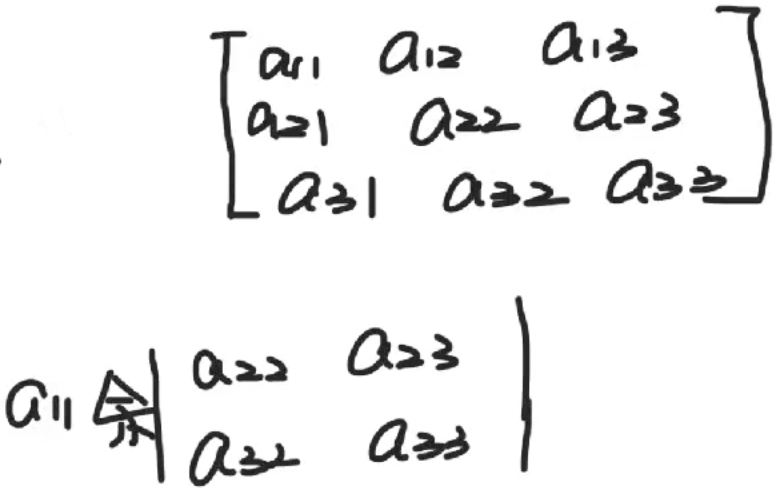 a11 a12 a13
a21 a22 a23
a31 a32 a33
a22 a23
a11 余
a32 a33